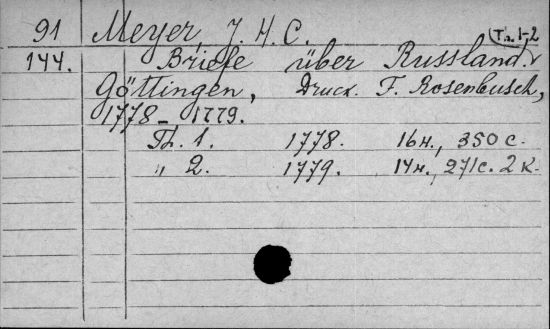 91 Meyer, J. H. C. (Th. 1-2
144. Briefe über Russland.
Göttingen, Druck. F. Rosenbusch,
1778-1779.
Th. 1. 1778. 16н., 350 с.
" 2. 1779. 14н., 271с. 2 к.